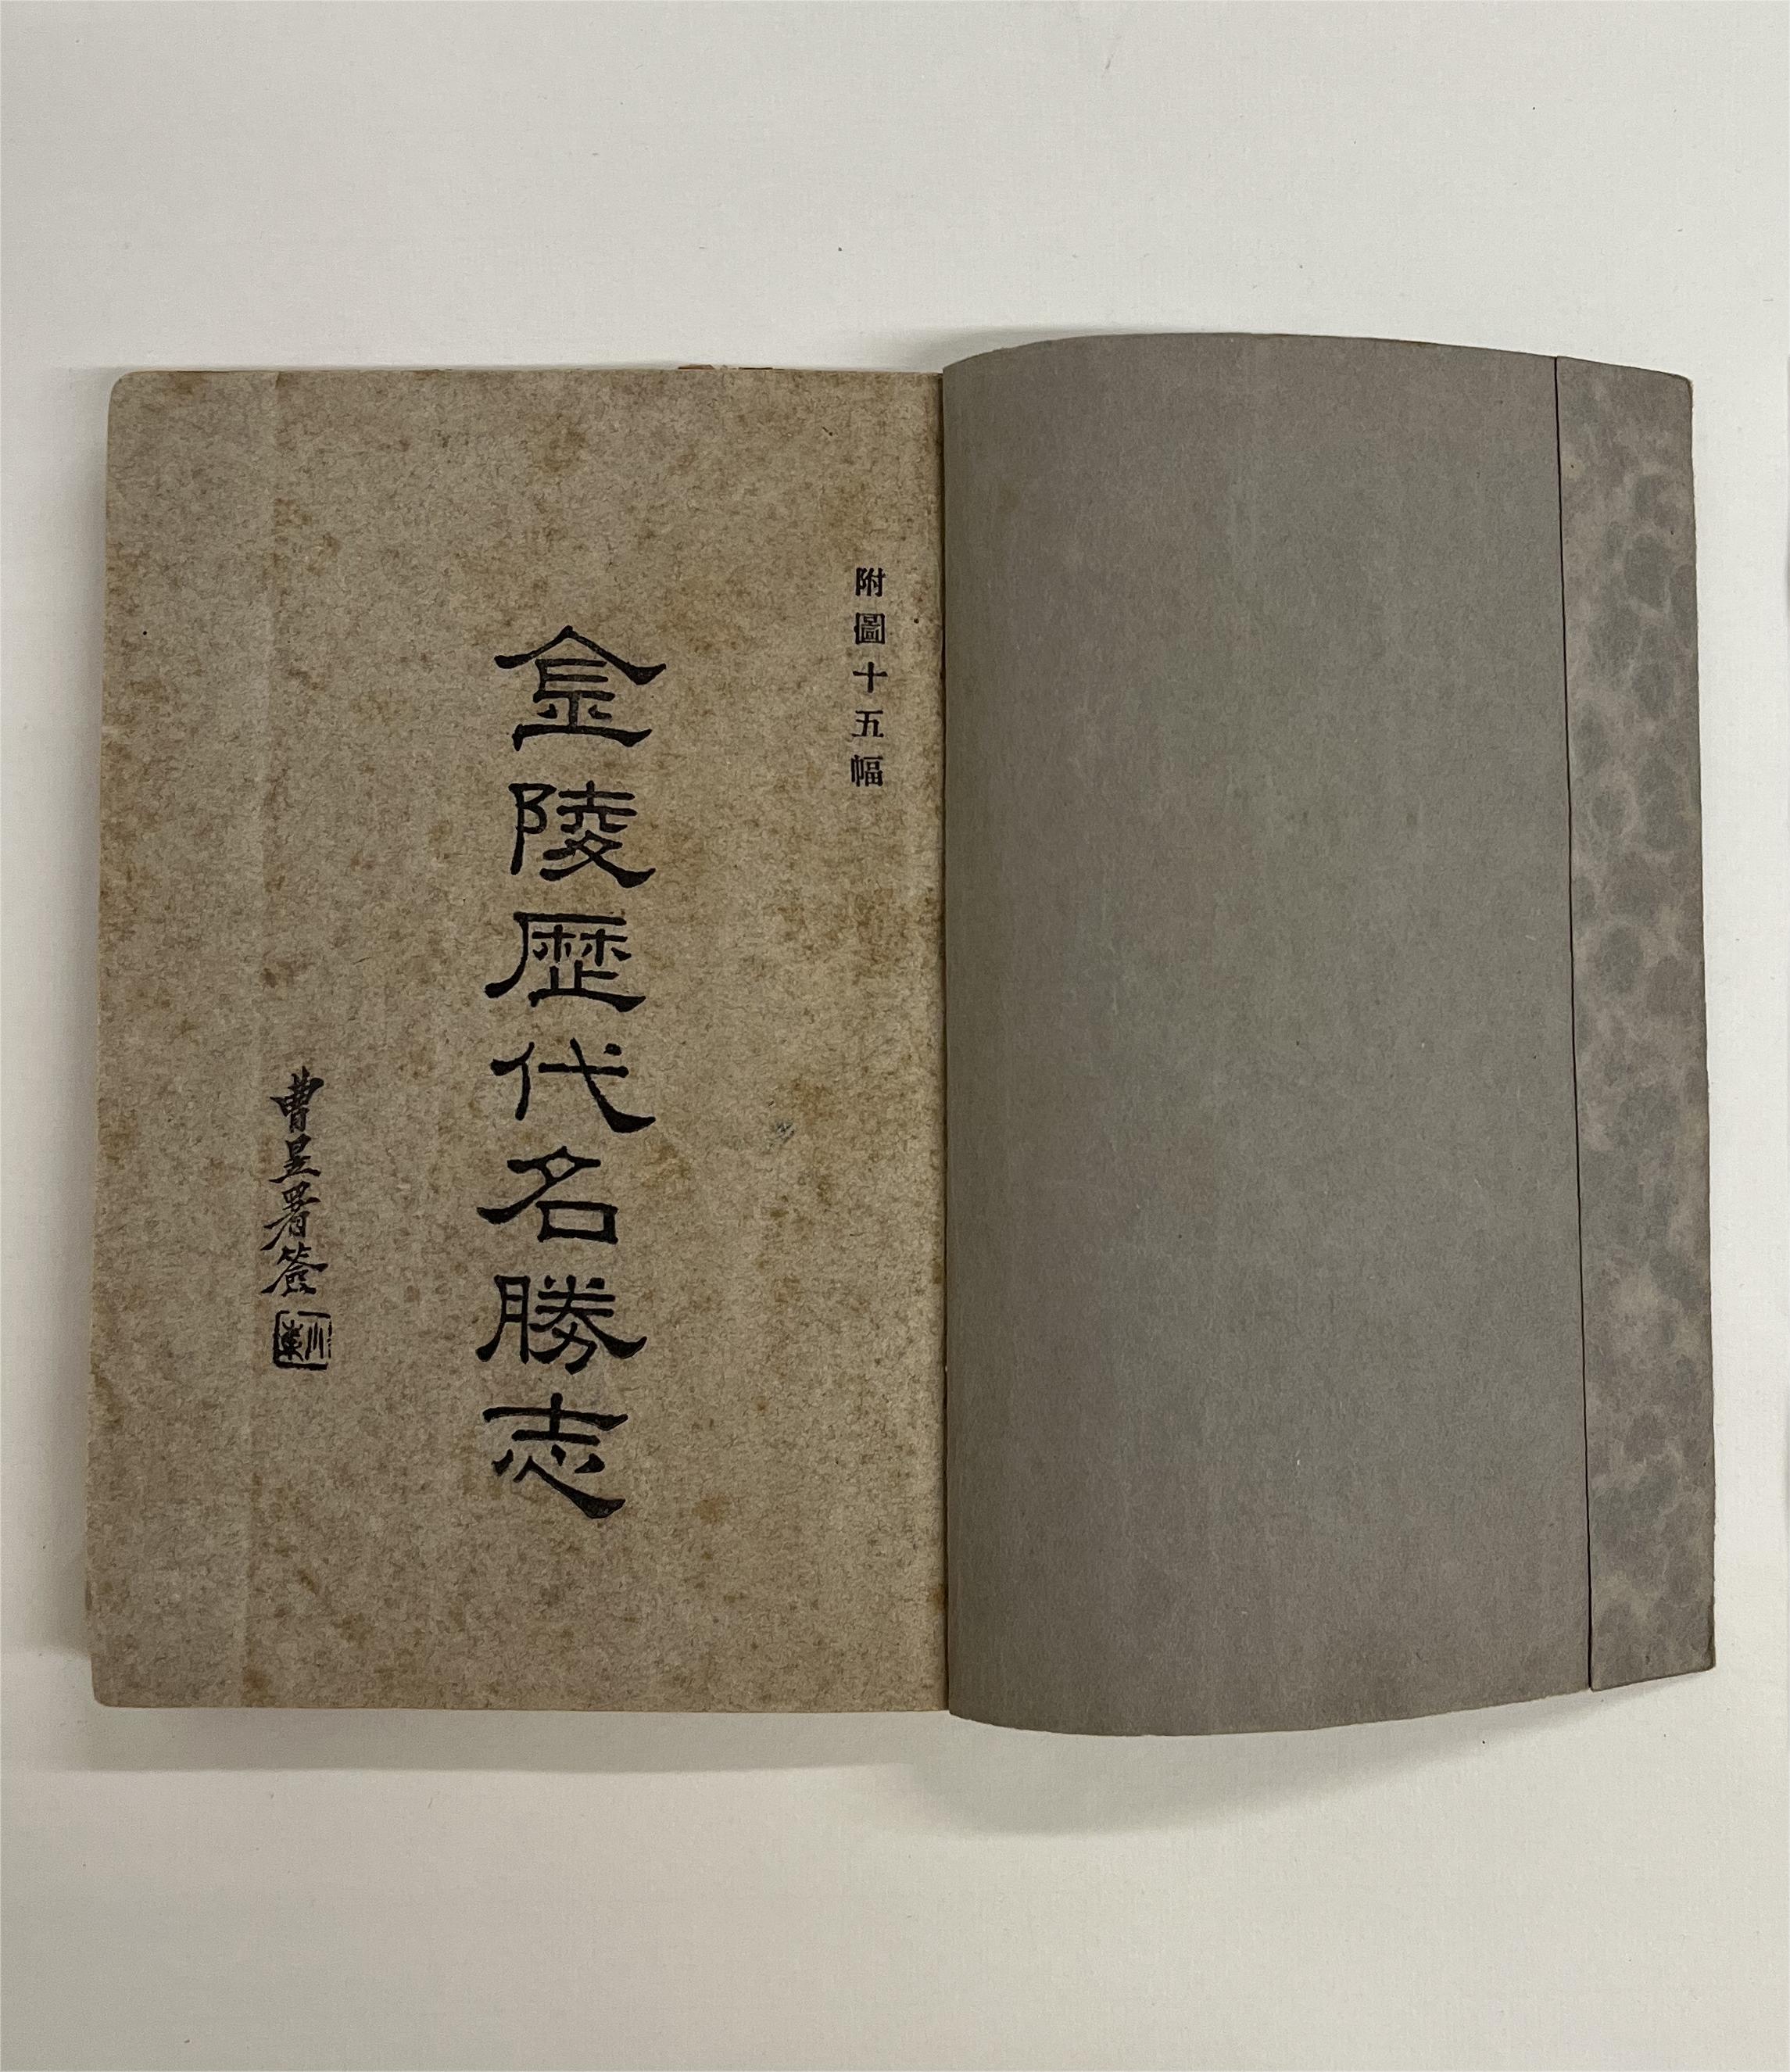 附圖十五幅
金陵歷代名勝志
曹昱署簽